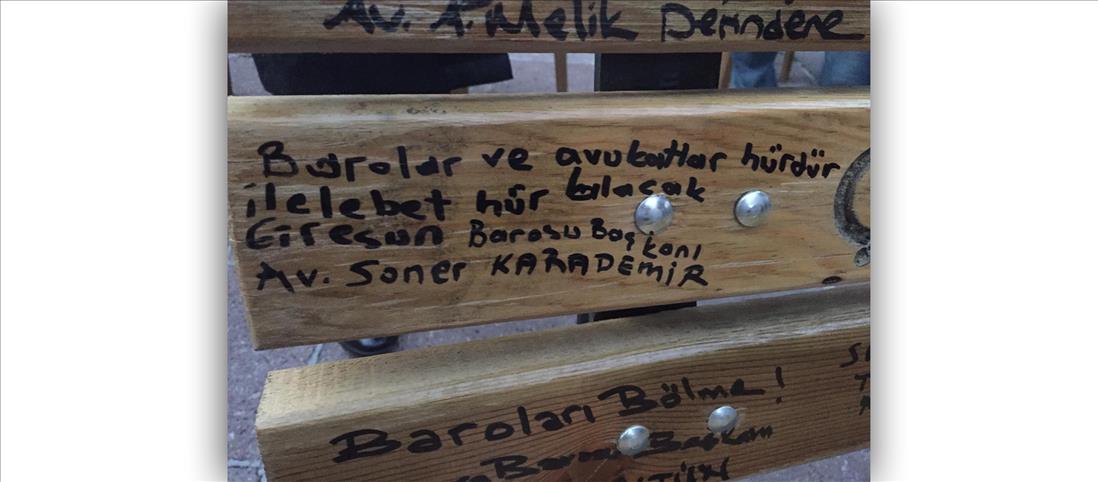 Av. A. Melik Derindere
Barolar ve avukatlar hürdür
ilelebet hür kılacak
Giresun Barosu Başkanı
Av. Soner KARADEMİR
Baroları Bölme!
Barosu Başkanı